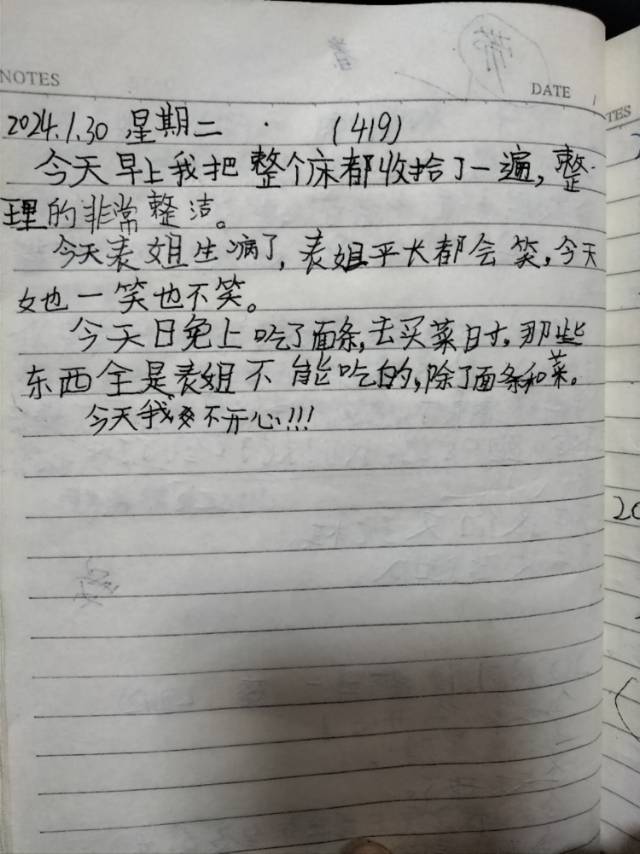 NOTES
DATE
TES
2024.1.30 星期二 · (419)
今天早上我把整个床都收拾了一遍,整
理的非常整洁。
今天表姐生病了,表姐平长都会笑,今天
她一笑也不笑。
今天日免上吃了面条,去买菜日寸,那些
东西全是表姐不能吃的,除了面条和菜。
今天我不开心!!!
20